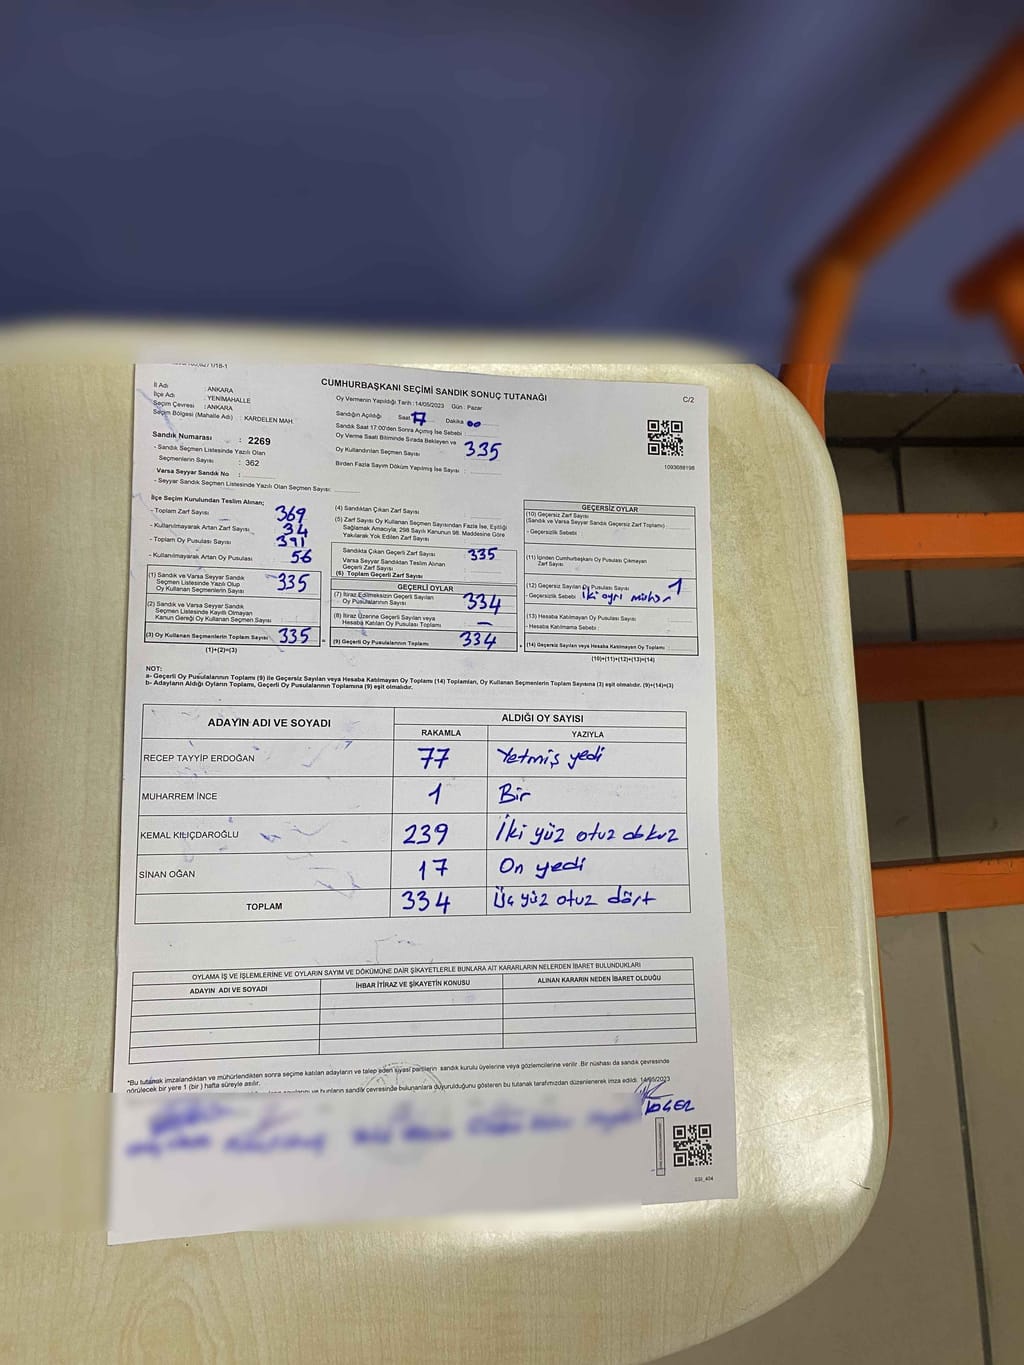 CUMHURBAŞKANI SEÇİMİ SANDIK SONUÇ TUTANAĞI
C/2
İl Adı : ANKARA
İlçe Adı : YENİMAHALLE
Seçim Çevresi : ANKARA
Seçim Bölgesi (Mahalle Adı) : KARDELEN MAH.
Sandık Numarası : 2269
- Sandık Seçmen Listesinde Yazılı Olan
Seçmenlerin Sayısı : 362
Varsa Seyyar Sandık No :
- Seyyar Sandık Seçmen Listesinde Yazılı Olan Seçmen Sayısı:
Oy Vermenin Yapıldığı Tarih :14/05/2023 Gün : Pazar
Sandığın Açıldığı Saat 17 Dakika 00
Sandık Saat 17:00'den Sonra Açımış İse Sebebi :
Oy Verme Saati Bitiminde Sırada Bekleyen ve
Oy Kullandırılan Seçmen Sayısı 335
Birden Fazla Sayım Döküm Yapılmış İse Sayısı :
1093688198
İlçe Seçim Kurulundan Teslim Alınan;
- Toplam Zarf Sayısı 369
- Kullanılmayarak Artan Zarf Sayısı 34
- Toplam Oy Pusulası Sayısı 391
- Kullanılmayarak Artan Oy Pusulası 56
(1) Sandık ve Varsa Seyyar Sandık
Seçmen Listesinde Yazılı Olup
Oy Kullanan Seçmenlerin Sayısı 335
(2) Sandık ve Varsa Seyyar Sandık
Seçmen Listesinde Kayıtlı Olmayan
Kanun Gereği Oy Kullanan Seçmen Sayısı :
(3) Oy Kullanan Seçmenlerin Toplam Sayısı 335
(1)+(2)=(3)
(4) Sandıktan Çıkan Zarf Sayısı
(5) Zarf Sayısı Oy Kullanan Seçmen Sayısından Fazla İse, Eşitliği
Sağlamak Amacıyla, 298 Sayılı Kanunun 98. Maddesine Göre
Yakılarak Yok Edilen Zarf Sayısı
Sandıkta Çıkan Geçerli Zarf Sayısı 335
Varsa Seyyar Sandıktan Teslim Alınan
Geçerli Zarf Sayısı
(6) Toplam Geçerli Zarf Sayısı
GEÇERLİ OYLAR
(7) İtiraz Edilmeksizin Geçerli Sayılan
Oy Pusulalarının Sayısı 334
(8) İtiraz Üzerine Geçerli Sayılan veya
Hesaba Katılan Oy Pusulası Toplamı —
(9) Geçerli Oy Pusulalarının Toplamı 334
GEÇERSİZ OYLAR
(10) Geçersiz Zarf Sayısı
(Sandık ve Varsa Seyyar Sandık Geçersiz Zarf Toplamı)
- Geçersizlik Sebebi :
(11) İçinden Cumhurbaşkanı Oy Pusulası Çıkmayan
Zarf Sayısı
(12) Geçersiz Sayılan Oy Pusulası Sayısı 1
- Geçersizlik Sebebi iki ayrı mühür
(13) Hesaba Katılmayan Oy Pusulası Sayısı
- Hesaba Katılmama Sebebi :
(14) Geçersiz Sayılan veya Hesaba Katılmayan Oy Toplamı
(10)+(11)+(12)+(13)=(14)
NOT:
a- Geçerli Oy Pusulasının Toplamı (9) ile Geçersiz Sayılan veya Hesaba Katılmayan Oy Toplamı (14) Toplamları, Oy Kullanan Seçmenlerin Toplam Sayısına (3) eşit olmalıdır. (9)+(14)=(3)
b- Adayların Aldığı Oyların Toplamı, Geçerli Oy Pusulalarının Toplamına (9) eşit olmalıdır.
ADAYIN ADI VE SOYADI
ALDIĞI OY SAYISI
RAKAMLA YAZIYLA
RECEP TAYYİP ERDOĞAN 77 Yetmiş yedi
MUHARREM İNCE 1 Bir
KEMAL KILIÇDAROĞLU 239 İki yüz otuz dokuz
SİNAN OĞAN 17 On yedi
TOPLAM 334 Üç yüz otuz dört
OYLAMA İŞ VE İŞLEMLERİNE VE OYLARIN SAYIM VE DÖKÜMÜNE DAİR ŞİKAYETLERLE BUNLARA AİT KARARLARIN NELERDEN İBARET BULUNDUKLARI
ADAYIN ADI VE SOYADI
İHBAR İTİRAZ VE ŞİKAYETİN KONUSU
ALINAN KARARIN NEDEN İBARET OLDUĞU
*Bu tutanak imzalandıktan ve mühürlendikten sonra seçime katılan adayların ve talep eden siyasi partilerin sandık kurulu üyelerine veya gözlemcilerine verilir. Bir nüshası da sandık çevresinde
görülecek bir yere 1 (bir ) hafta süreyle asılır.
bunların sandık çevresinde bulunanlara duyurulduğunu gösteren bu tutanak tarafımızdan düzenlenerek imza edildi. 14/05/2023